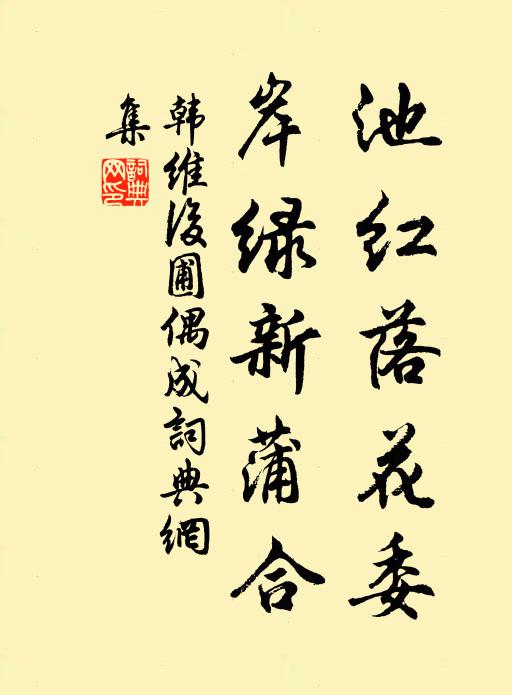 池红落花委
岸绿新蒲合
韩维後圃偶成詞典網
集
詞典網印